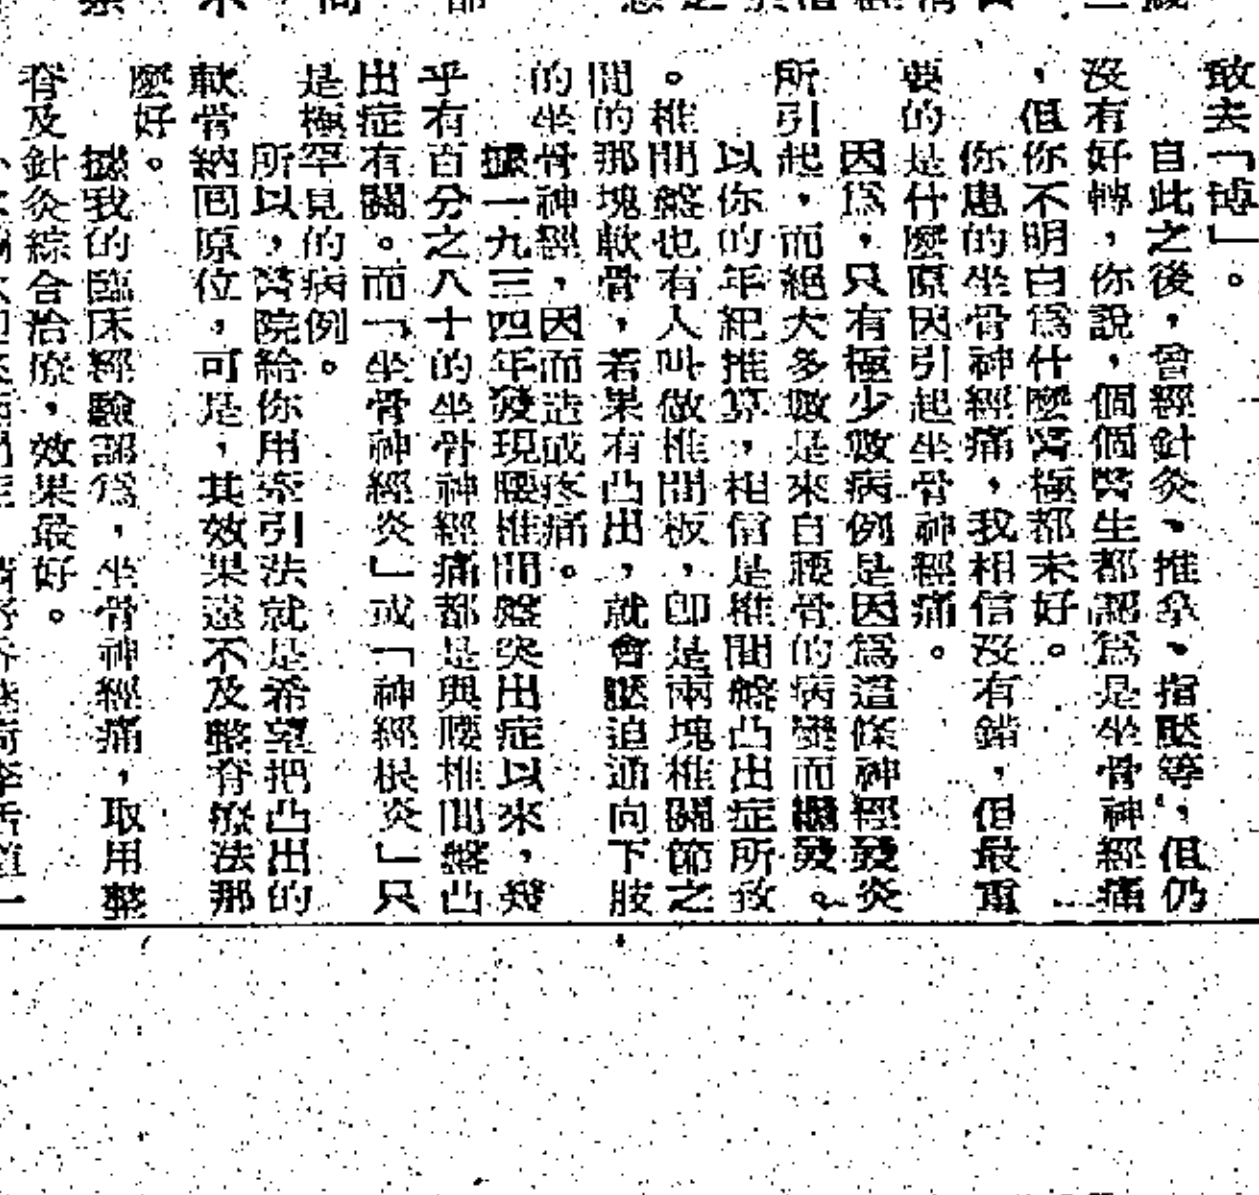 敢去「博」。
自此之後，曾經針灸、推拿、指壓等，但仍
沒有好轉，你說，個個醫生都認爲是坐骨神經痛
，但你不明白爲什麼醫極都未好。
你患的坐骨神經痛，我相信沒有錯，但最重
要的是什麼原因引起坐骨神經痛。
因爲，只有極少數病例是因爲這條神經發炎
所引起，而絕大多數是來自腰骨的病變而繼發。
以你的年紀推算，相信是椎間盤凸出症所致
。椎間盤也有人叫做椎間板，即是兩塊椎關節之
間的那塊軟骨，若果有凸出，就會壓迫通向下肢
的坐骨神經，因而造成疼痛。
據一九三四年發現腰椎間盤突出症以來，幾
乎有百分之八十的坐骨神經痛都是與腰椎間盤凸
出症有關。而「坐骨神經炎」或「神經根炎」只
是極罕見的病例。
所以，醫院給你用牽引法就是希望把凸出的
軟骨納囘原位，可是，其效果遠不及整脊療法那
麼好。
據我的臨床經驗認爲，坐骨神經痛，取用整
脊及針灸綜合治療，效果最好。